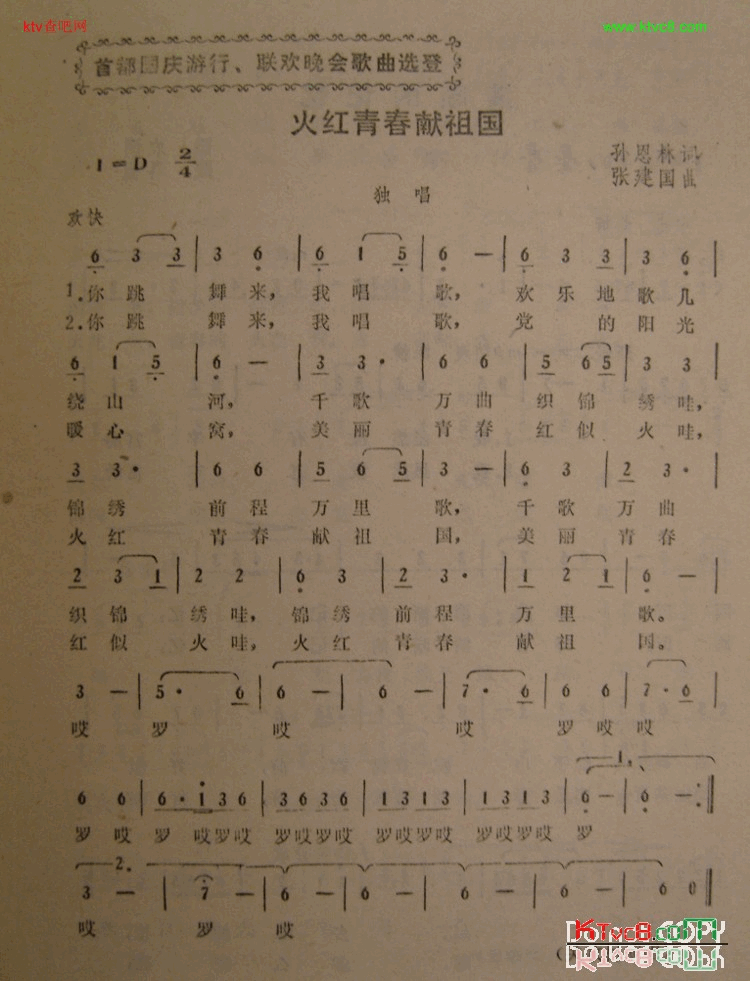 ktv查吧网
www.ktvc8.com
首都国庆游行、联欢晚会歌曲选登
火红青春献祖国
1=D 2/4
孙恩林词
张建国曲
独 唱
欢快
6 3 3 | 3 6 | 6 1 5 | 6 — | 6 3 3 | 3 6 |
1.你跳 舞来, 我唱 歌, 欢乐地歌几
2.你跳 舞来, 我唱 歌, 党 的阳光
6 1 5 | 6 — | 3 3· | 6 6 | 5 6 5 | 3 3 |
绕山 河, 千歌 万曲 织锦 绣哇,
暖心 窝, 美丽 青春 红似 火哇,
3 3· | 6 6 | 5 6 5 | 3 — | 6 3 | 2 3· |
锦绣 前程 万里 歌, 千歌 万曲
火红 青春 献祖 国, 美丽 青春
2 3 1 | 2 2 | 6 3 | 2 2· | 1 2 1 | 6 — |
织锦 绣哇, 锦绣 前程 万里 歌。
红似 火哇, 火红 青春 献祖 国。
3 — | 5· 6 | 6 — | 6 — | 7· 6 | 6 6 | 7· 6 |
哎 罗 哎 哎 罗哎哎
6 6 | 6·i36 | 3636 | 1313 | 1313 | 6 — | 6 — :|
罗哎 罗 哎罗哎 罗哎罗哎 罗哎罗哎 罗哎罗哎 罗
1.
2.
3 — | 7 — | 6 — | 6 — | 6 — | 6 — | 6 0 ‖
哎 罗 哎
KTvc8.com
DO NOT COPY